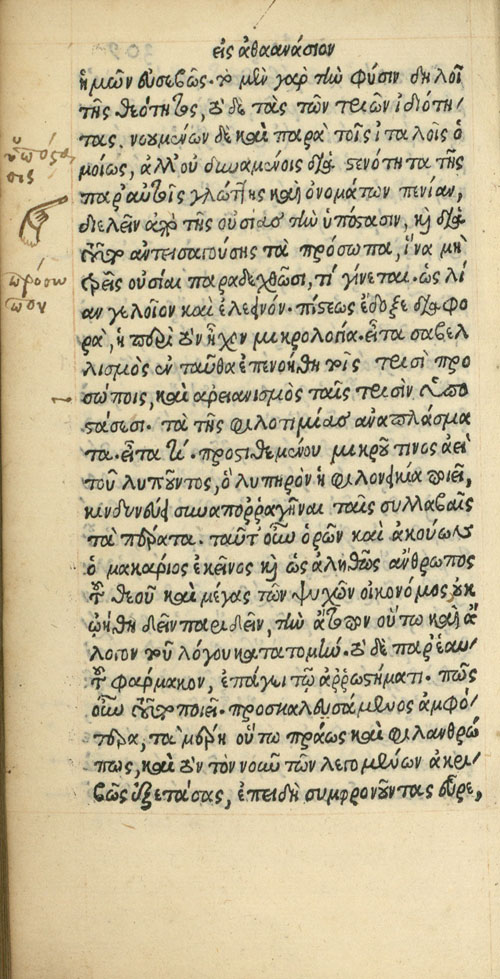 εἰς ἀθαανάσιον
ἡμῶν εὐσεβῶς. τὸ μὲν γὰρ τὴν φύσιν δηλοῖ
τῆς θεότητος, τὸ δὲ τὰς τῶν τριῶν ἰδιότη/
τας. νοουμένων δὲ καὶ παρὰ τοῖς ἰταλοῖς ὁ
μοίως, ἀλλ' οὐ δυναμένοις διὰ στενότητα τῆς
παρ' αὐτοῖς γλώττης καὶ ὀνομάτων πενίαν,
διελεῖν ἀπὸ τῆς οὐσίας τὴν ὑπόστασιν, καὶ διὰ
τοῦτο ἀντεισαγούσης τὰ πρόσωπα, ἵνα μὴ
τρεῖς οὐσίαι παραδεχθῶσι, τί γίνεται. ὡς λί
αν γελοῖον καὶ ἐλεεινόν. πίστεως ἔδοξε διαφο
ρὰ, ἡ περὶ τὸν ἦχον μικρολογία. εἶτα σαβελ
λισμὸς ἐνταῦθα ἐπενοήθη τοῖς τρισὶ προ
σώποις, καὶ ἀρειανισμὸς ταῖς τρισὶν ὑπο
στάσεσι. τὰ τῆς φιλοτιμίας ἀναπλάσμα
τα. εἶτα τί. προστιθεμένου μικροῦ τινος ἀεὶ
τοῦ λυποῦντος, ὃ λυπηρὸν ἡ φιλονεικία ποιεῖ,
κινδυνεύει συναπορραγῆναι ταῖς συλλαβαῖς
τὰ πέρατα. ταῦτ' οὖν ὁρῶν καὶ ἀκούων
ὁ μακάριος ἐκεῖνος καὶ ὡς ἀληθῶς ἄνθρωπος
τοῦ θεοῦ καὶ μέγας τῶν ψυχῶν οἰκονόμος οὐκ
ᾠήθη δεῖν παριδεῖν, τὴν ἄτοπον οὕτω καὶ ἄ
λογον τοῦ λόγου κατατομήν. τὸ δὲ παρ' ἑαυ/
τοῦ φάρμακον, ἐπάγει τῷ ἀρρωστήματι. πῶς
οὖν τοῦτο ποιεῖ. προσκαλεσάμενος ἀμφό/
τερα, τὰ μέρη οὕτω πράως καὶ φιλανθρώ
πως, καὶ τὸν νοῦν τῶν λεγομένων ἀκρι/
βῶς ἐξετάσας, ἐπειδὴ συμφρονοῦντας εὗρε,
ὑπόστα
σις
πρόσω
πον